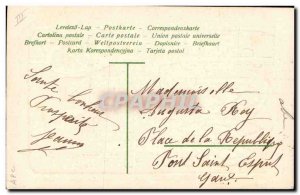 Levelező-Lap — Postkarte — Correspondenzkarte
Cartolina postale — Carte postale — Union postale universelle
Brefkort — Postcard — Weltpostverein — Dopisnice — Briefkaart
Karta Korespondencyjna — Tarjeta postal
III
Santé bonheur
Prospérité
Jeanne
Mademoiselle
Augusta Roy
Place de la République
Pont Saint Esprit
Gard